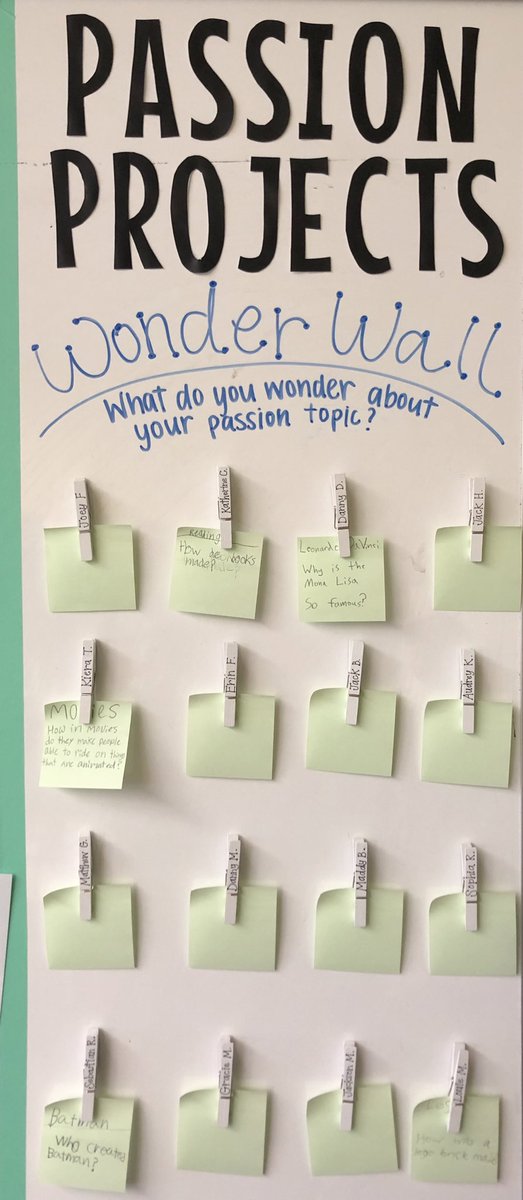 PASSION
PROJECTS
Wonder Wall
What do you wonder about
your passion topic?
Joey F
Katherine G.
Danny D.
Jack H.
Reading
How do books
made?
Leonardo DaVinci
Why is the
Mona Lisa
So famous?
Kiera T.
Erin F.
Jack B.
Audrey K.
Movies
How in Movies
do they make people
able to ride on thing
that are animated?
Matthew G.
Danny M.
Maddy B.
Sophia R.
Sebastian R.
Gracie M.
Jackson M.
Louie M.
Batman
Who created
Batman?
How was a
lego brick made